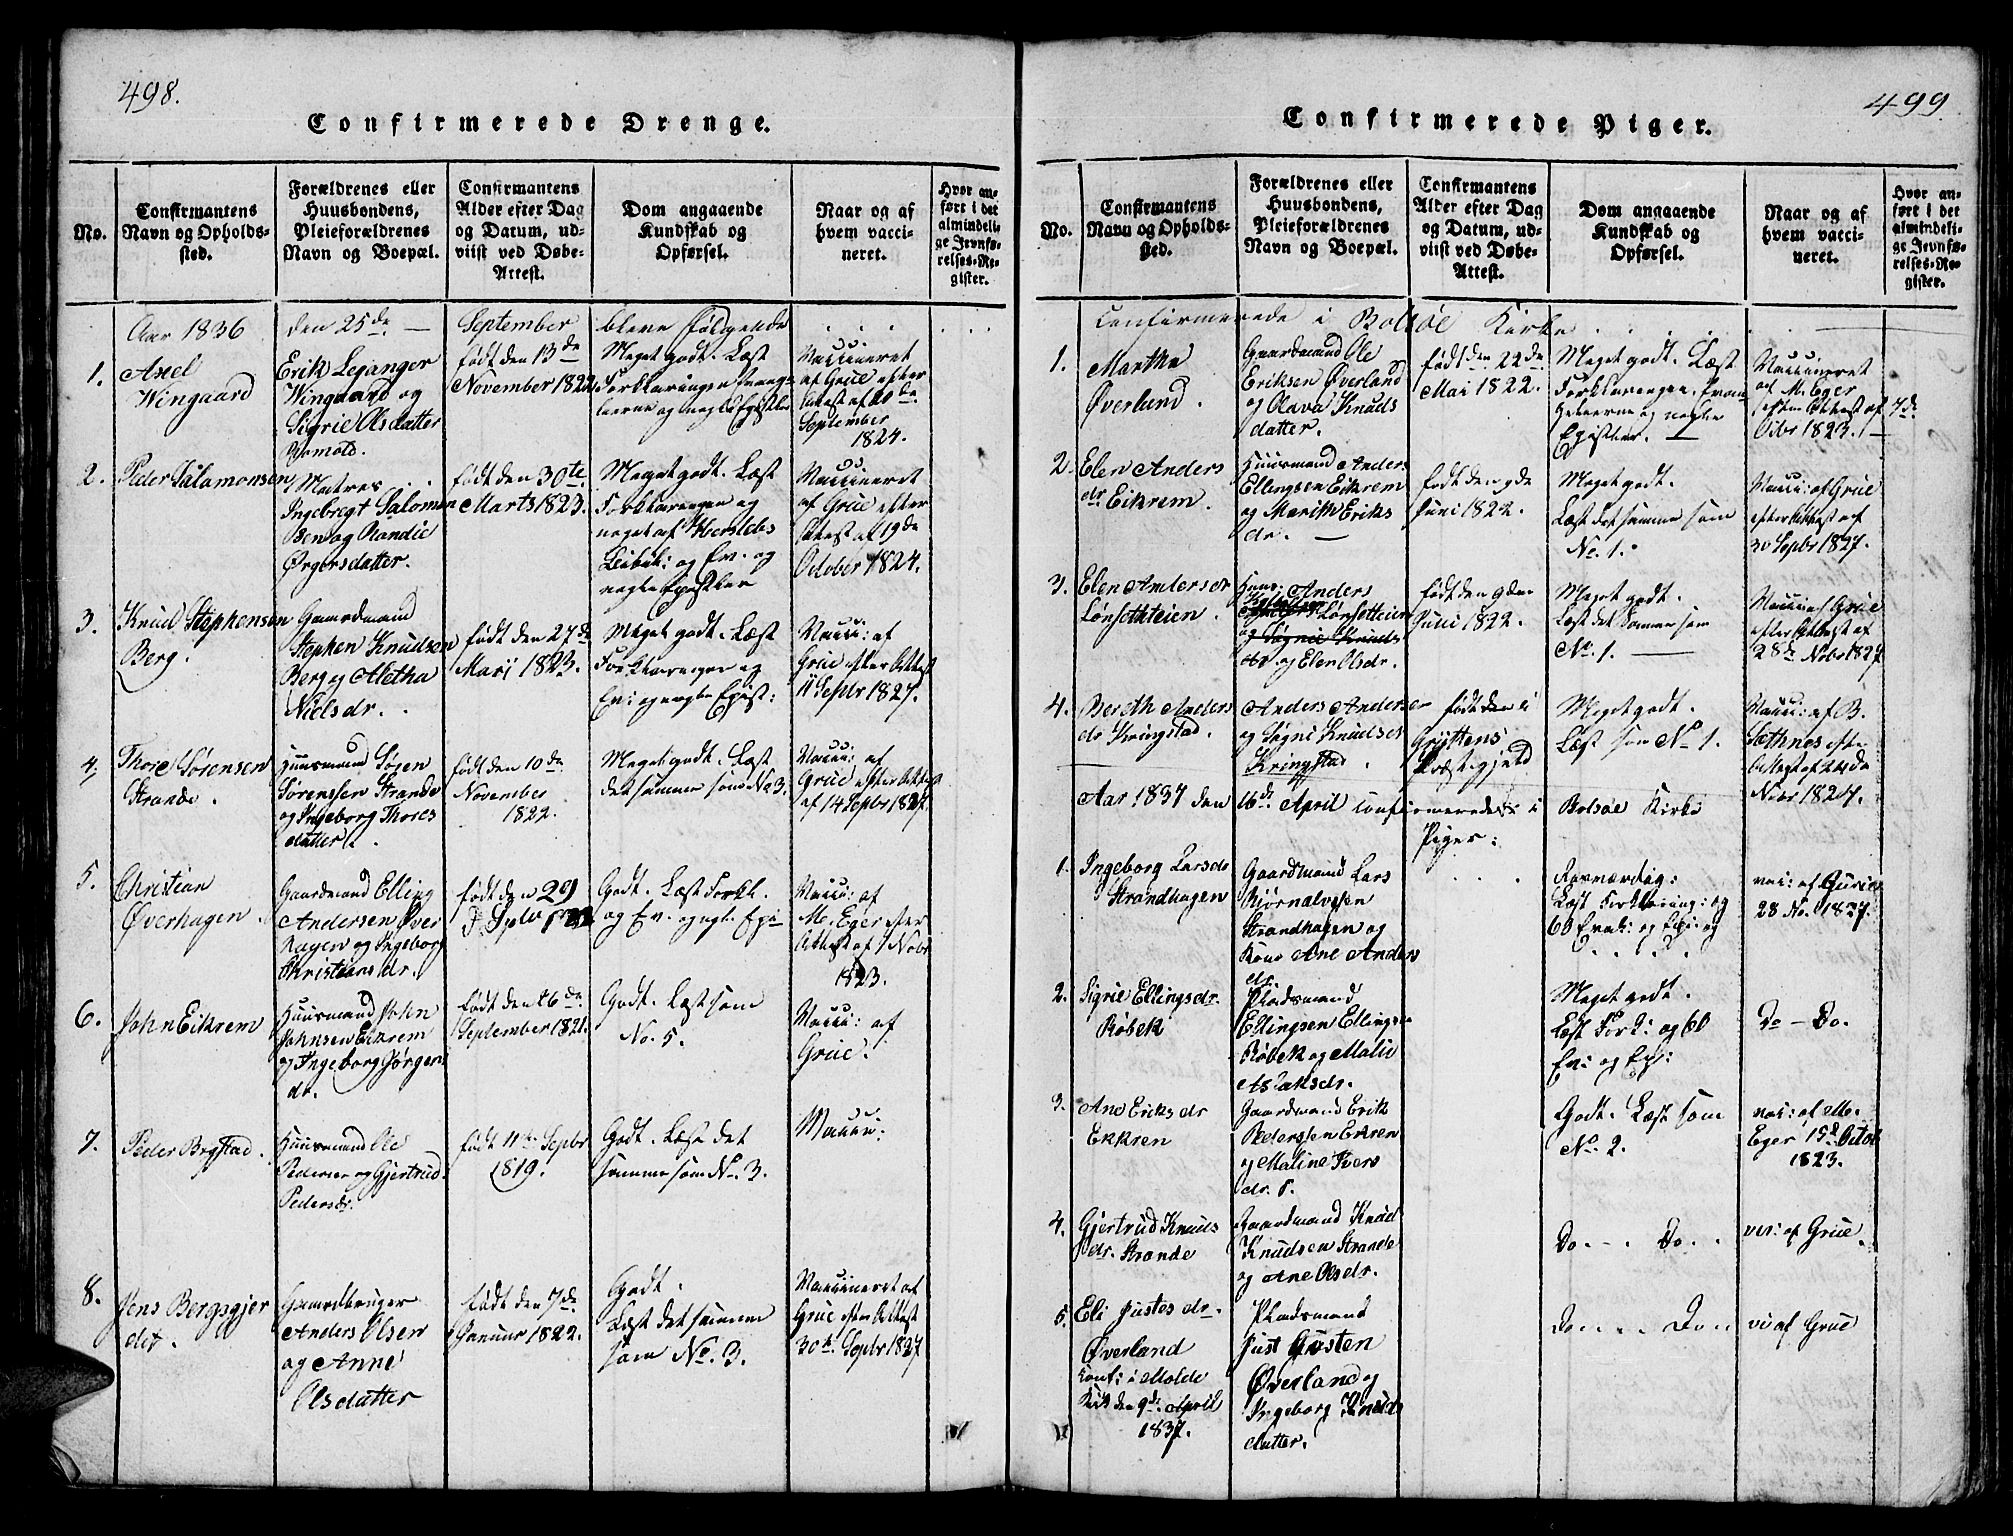 498.
Confirmerede Drenge.
No.
Confirmantens
Navn og Opholds-
sted.
Forældrenes eller
Huusbondens,
Pleieforældrenes
Navn og Boepæl.
Confirmantens
Alder efter Dag
og Datum, ud-
viist ved Døbe-
Attest.
Dom angaaende
Kundskab og
Opførsel.
Naar og af
hvem vacci-
neret.
Hvor an-
ført i det
almindeli-
ge Jevnfø-
relses-Re-
gister.
Aar 1836 den 25de — September bleve følgende
1.
Axel
Wingaard
Erik Leganger
Wingaard og
Sigrie Olsdatter
født den 13de
November 1822
Meget godt. Læst
Forklaringen Evang-
lierne og nogle Epistler
Vaccineret
af Grüe efter
Attest af 20de
September
1824.
2.
Peder Salomonsen
Ingebregt Salomon
sen og Randie
Ørgersdatter.
født den 30te
Marts 1823.
Meget godt. Læst
Forklaringen og
noget af Herslebs
Bibel: og Ev. og
nogle Epistler
Vaccineret
af Grüe efter
Attest af 19de
October 1824.
3.
Knud Stephensen
Berg.
Gaardmand
Stephen Knudsen
Berg og Aletha
Nielsdr.
født den 27de
Marij 1823.
Meget godt. Læst
Forklaringen og
Ev: og nogle Epist:
Vacci: af
Grüe efter Attest
11 Septbr 1827.
4.
Thore Sørensen
Strande.
Huusmand Søren
Sørenssen Strande
og Ingeborg Thores
datter.
født den 10de
November
1822.
Meget godt. Læst
det samme som No 3.
Vacci: af
Grüe efter Attest
af 14 Septbr 1827.
5.
Christian
Øverhagen.
Gaardmand Elling
Andersen Øver
hagen og Ingeborg
Christiansdr.
født den 29
Septbr
Godt. Læst Forkl.
og Ev. og ngl. Epi-
Vacci: af
M. Eger efter
Attest af 1 Nobr
1823.
6.
John Eikrem
Huusmand John
Johnsen Eikrem
og Ingeborg Jørgens
dr.
født den 26de
September 1821.
Godt. Læst som
No. 5.
Vacci: af
Grüe.
7.
Peder Bergstad.
Huusmand Ole
Pedersen og Gjertrud
Pedersdr.
født 11te Septbr
1819.
Godt. Læst det
samme som No. 3.
Vacci:
8.
Jens Bergsgjer
det.
Gaardbruger
Anders Olsen
og Anne
Olsdatter
født den 7de
Januar 1822.
Godt.
Læst det samme
som No. 3.
Vaccineret af
Grüe efter Attest
30te Septbr 1827
499.
Confirmerede Piger.
No.
Confirmantens
Navn og Opholds-
sted.
Forældrenes eller
Huusbondens,
Pleieforældrenes
Navn og Boepæl.
Confirmantens
Alder efter Dag
og Datum, ud-
viist ved Døbe-
Attest.
Dom angaaende
Kundskab og
Opførsel.
Naar og af
hvem vacci-
neret.
Hvor an-
ført i det
almindeli-
ge Jevnfø-
relses-Re-
gister.
Confirmerede i Bolsøe Kirke
1.
Martha
Øverland.
Gaardmand Ole
Eriksen Øverland
og Olava Knuds
datter.
født den 22de
Mai 1822.
Meget godt. Læst
Forklaringen, Evan-
gelierne og nogle
Epistler. —
Vaccineret
af M. Eger
efter Attest af 7de
Octbr 1823.
2.
Elen Anders
dr Eikrem.
Huusmand Anders
Ellingsen Eikrem
og Marith Eriks
dr. —
født den 9de
Juni 1822.
Meget godt.
Læst det samme som
No. 1.
Vacci: af Grüe
efter Attest af
30 Septbr 1827.
3.
Elen Andersdr
Lønsethteien.
Huus: Anders
Lønsetteien
og Søgnie Knuds
dr. og Elen Olsdr.
født den 9de
Juni 1822.
Meget godt.
Læst det samme som
No. 1. —
Vacci: af Grüe
efter Attest af
28de Nobr 1827
4.
Bereth Anders
dr Kringstad.
Anders Andersen
og Søgni Knudsdr
Kringstad.
født den i
Gryttens
Præstegjeld
Meget godt.
Læst som No 1.
Vacci: af B.
Sæthnes efter
Attest af 24de
Nobr 1827.
Aar 1837 den 16de April confirmerede i Bolsøe Kirke
Piger:
1.
Ingeborg Larsdr
Strandhagen
Gaardmand Lars
Bjørnalvsen
Strandhagen og
Kone Ane Anders
dr.
Læst Forklaring: og
60 Evak: og Epi: og
vac: af Gurie
28 No. 1827.
2.
Sigrie Ellingsdr.
Røbek
Pladsmand
Ellingsen Ellingsen
Røbek og Malie
Aslaksdr.
Meget godt.
Læst Fork: og 60
Ev: og Epi:
Do — Do.
3.
Ane Eriksdr
Ekkren
Gaardmand Erik
Pederssen Ekren
og Maline Ivers
dr.
Godt. Læst som
No. 2.
vac: af M.
Eger 15de Octob
1823.
4.
Gjertrud Knuds
dr. Strande
Gaardmand Knud
Knudsen Strande
og Ane Olsdr.
Do - - Do. -
vac: af Grüe.
5.
Eli Justes dr.
Øverland
Conf: i Molde
Kirk den 9de April
1837.
Pladsmand
Just Justen
Øverland og
Ingeborg Knuds
datter.
Do - - - Do -
vc: af Grüe